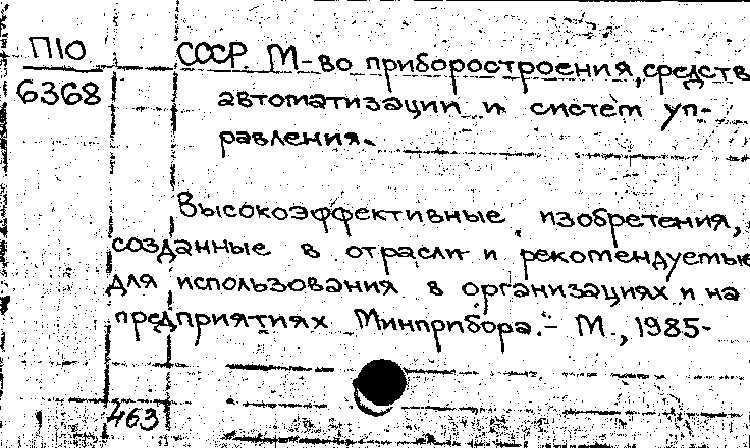 П10
6368
СССР. М-во приборостроения, средств
автоматизации и систем уп-
равления.
Высокоэффективные изобретения,
созданные в отрасли и рекомендуемые
для использования в организациях и на
предприятиях Минприбора. - М., 1985-
463